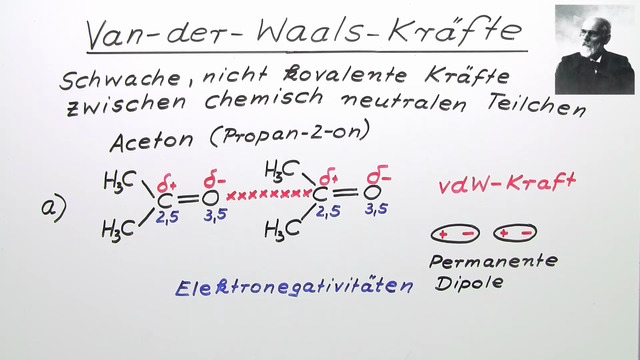 Van-der-Waals-Kräfte
Schwache, nicht kovalente Kräfte
zwischen chemisch neutralen Teilchen
Aceton (Propan-2-on)
a)
H₃C δ+ δ- H₃C δ+ δ-
C=O xxxxxxxxx C=O
H₃C 2,5 3,5 H₃C 2,5 3,5
vdW-Kraft
+ - + -
Permanente
Dipole
Elektronegativitäten